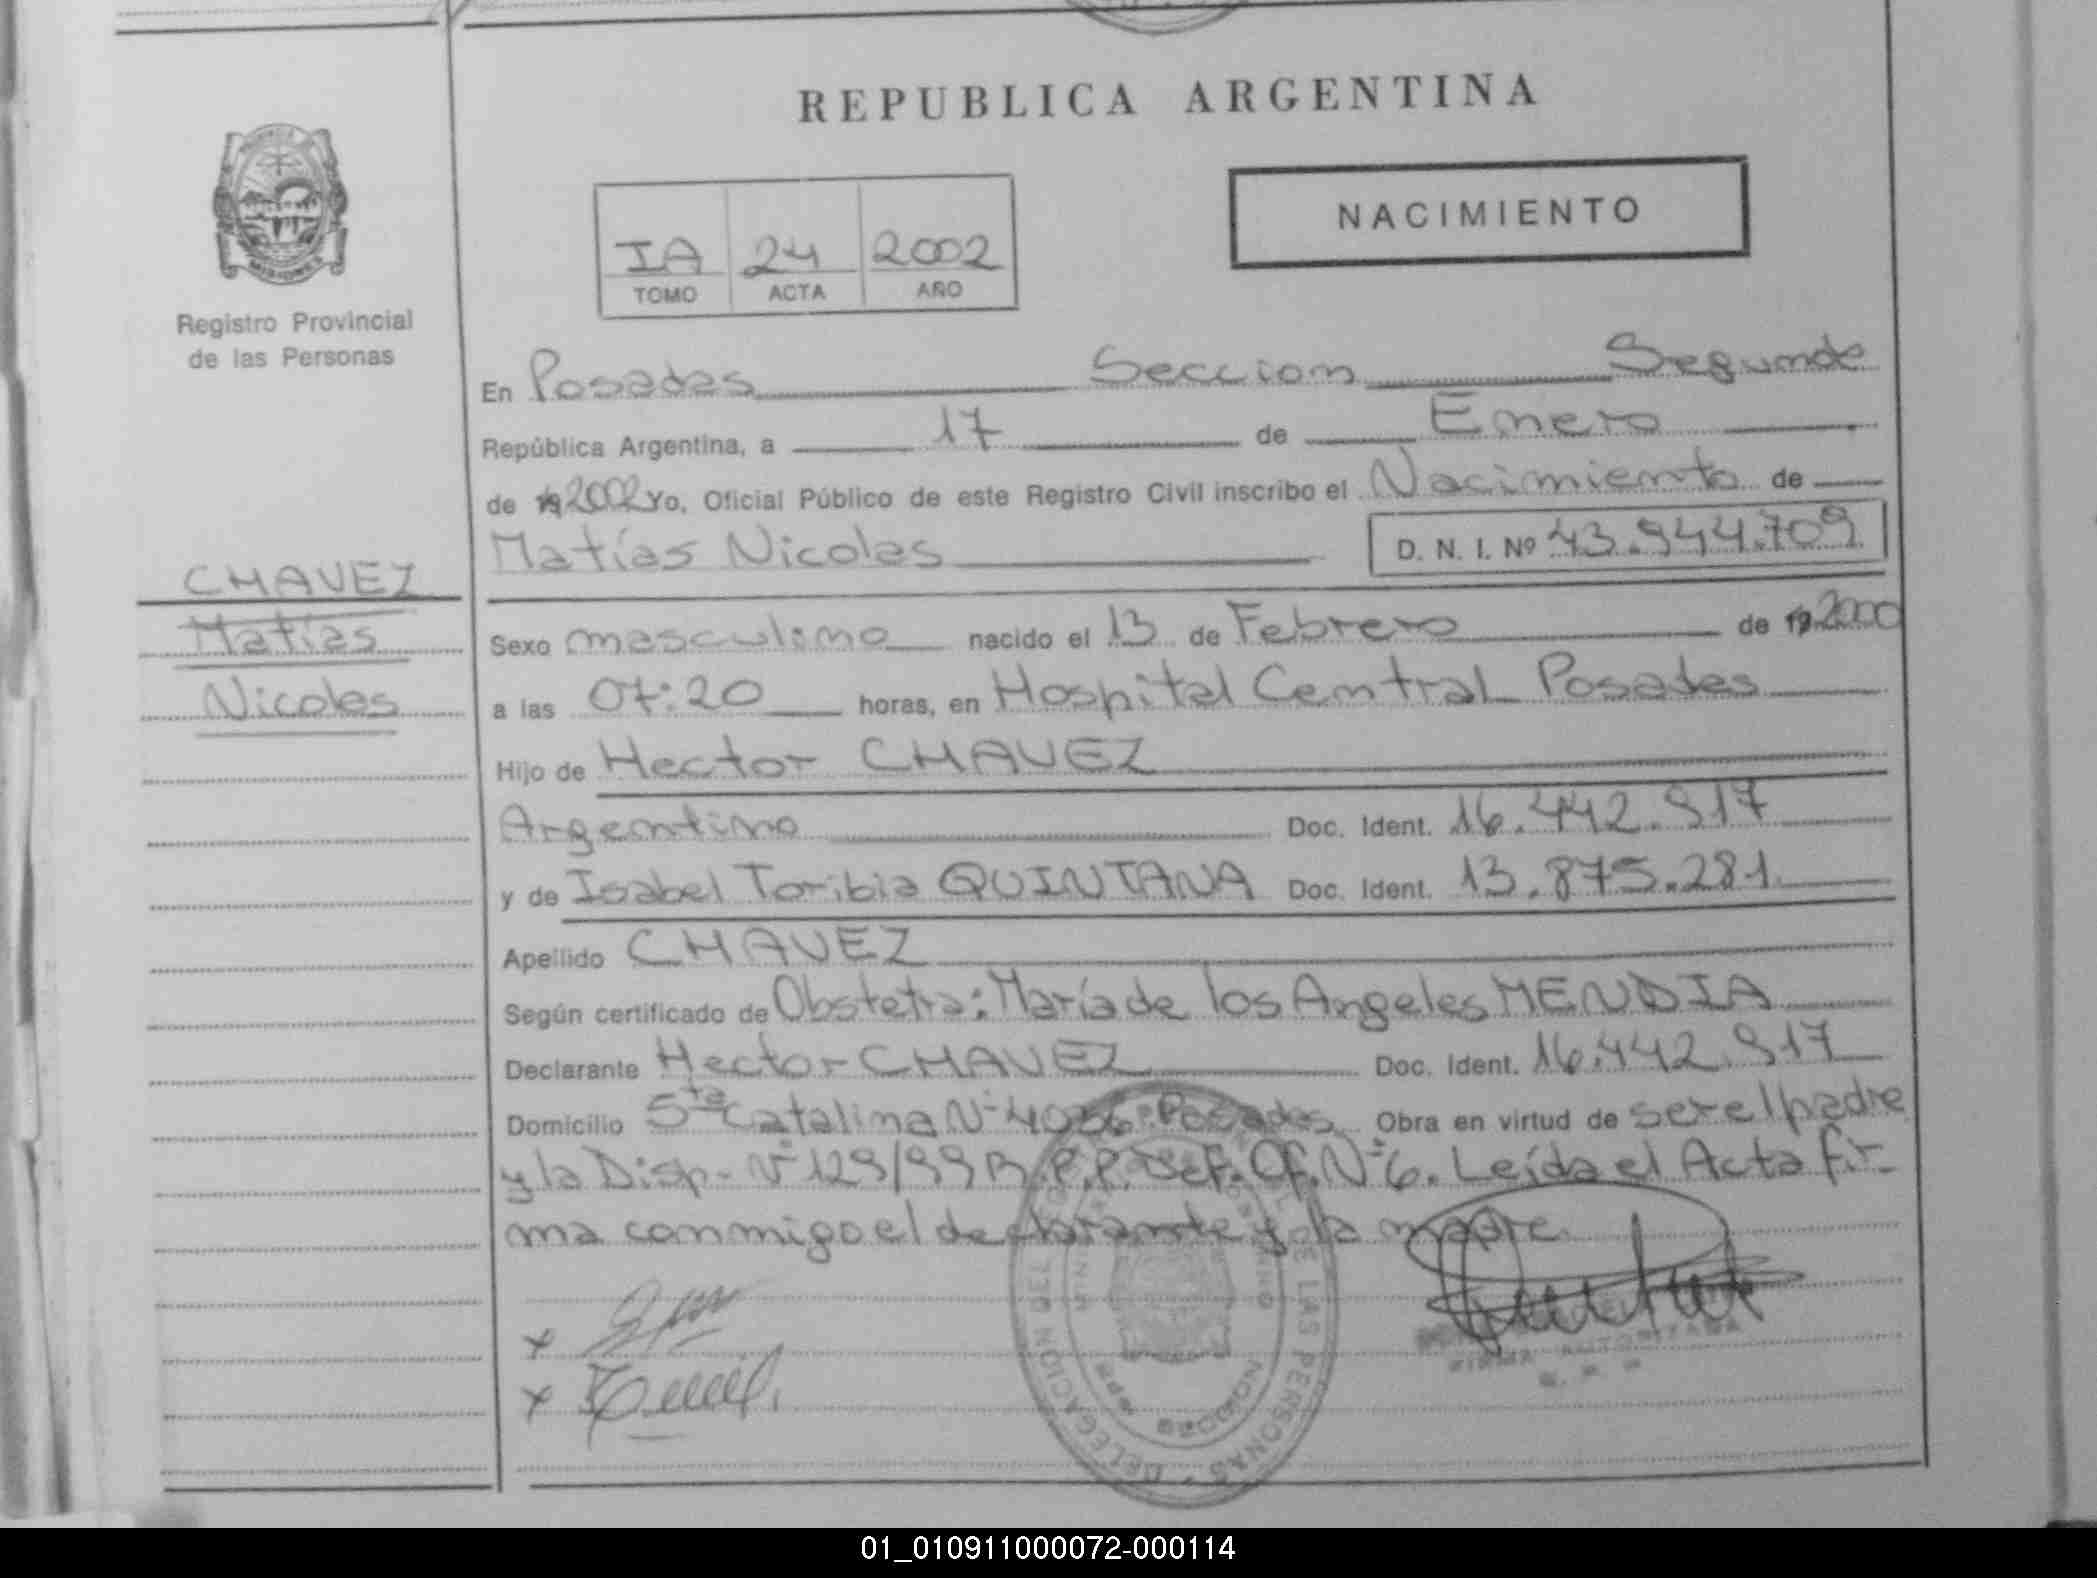 REPUBLICA ARGENTINA
NACIMIENTO
IA 24 2002
TOMO ACTA AÑO
MISIONES
Registro Provincial
de las Personas
CHAVEZ
Matías
Nicolas
En Posadas Seccion Segunda
República Argentina, a 17 de Enero
de 19 2002 Yo, Oficial Público de este Registro Civil inscribo el Nacimiento de
Matías Nicolas D. N. I. Nº 43.944.709
Sexo masculino nacido el 13 de Febrero de 19 2000
a las 07:20 horas, en Hospital Central Posadas
Hijo de Hector CHAVEZ
Argentino Doc. Ident. 16.442.917
y de Isabel Toribia QUINTANA Doc. Ident. 13.875.281
Apellido CHAVEZ
Según certificado de Obstetra: María de los Angeles MENDIA
Declarante Hector CHAVEZ Doc. Ident. 16.442.917
Domicilio Sta Catalina Nº Posadas Obra en virtud de ser el padre
y la Disp. Nº 129/99 R.P.P. Of. Nº 6. Leída el Acta fir-
ma conmigo el declarante y la madre.
DELEGACION DEL LAS PERSONAS
FIRMA AUTORIZADA
01_010911000072-000114